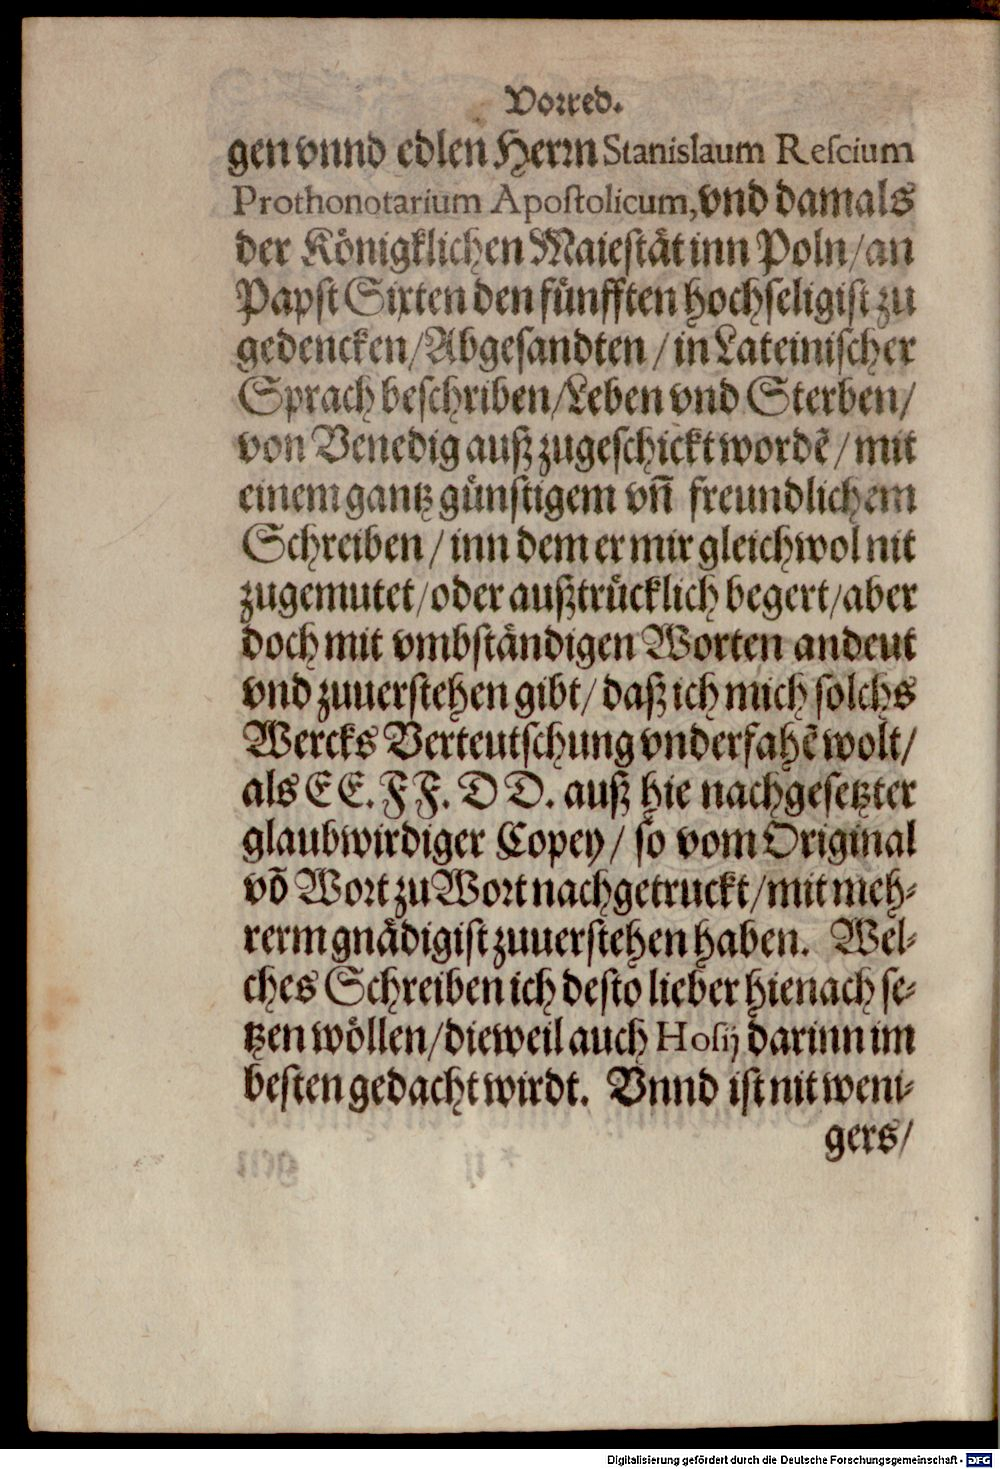 Vorred.
gen vnnd edlen Herrn Stanislaum Rescium
Prothonotarium Apostolicum, vnd damals
der Königklichen Maiestät inn Poln/an
Papst Sixten den fünfften hochseligist zu
gedencken/Abgesandten/in Lateinischer
Sprach beschriben/Leben vnd Sterben/
von Venedig auß zugeschickt wordẽ/mit
einem gantz günstigem vñ freundlichem
Schreiben/inn dem er mir gleichwol nit
zugemutet/oder außtrücklich begert/aber
doch mit vmbständigen Worten andeut
vnd zuuerstehen gibt/daß ich mich solchs
Wercks Verteutschung vnderfahẽ wolt/
als E E. F F. D D. auß hie nachgesetzter
glaubwirdiger Copey/so vom Original
võ Wort zu Wort nachgetruckt/mit meh-
rerm gnädigist zuuerstehen haben. Wel-
ches Schreiben ich desto lieber hienach se-
tzen wöllen/dieweil auch Hosij darinn im
besten gedacht wirdt. Vnnd ist nit weni-
gers/
Digitalisierung gefördert durch die Deutsche Forschungsgemeinschaft - DFG